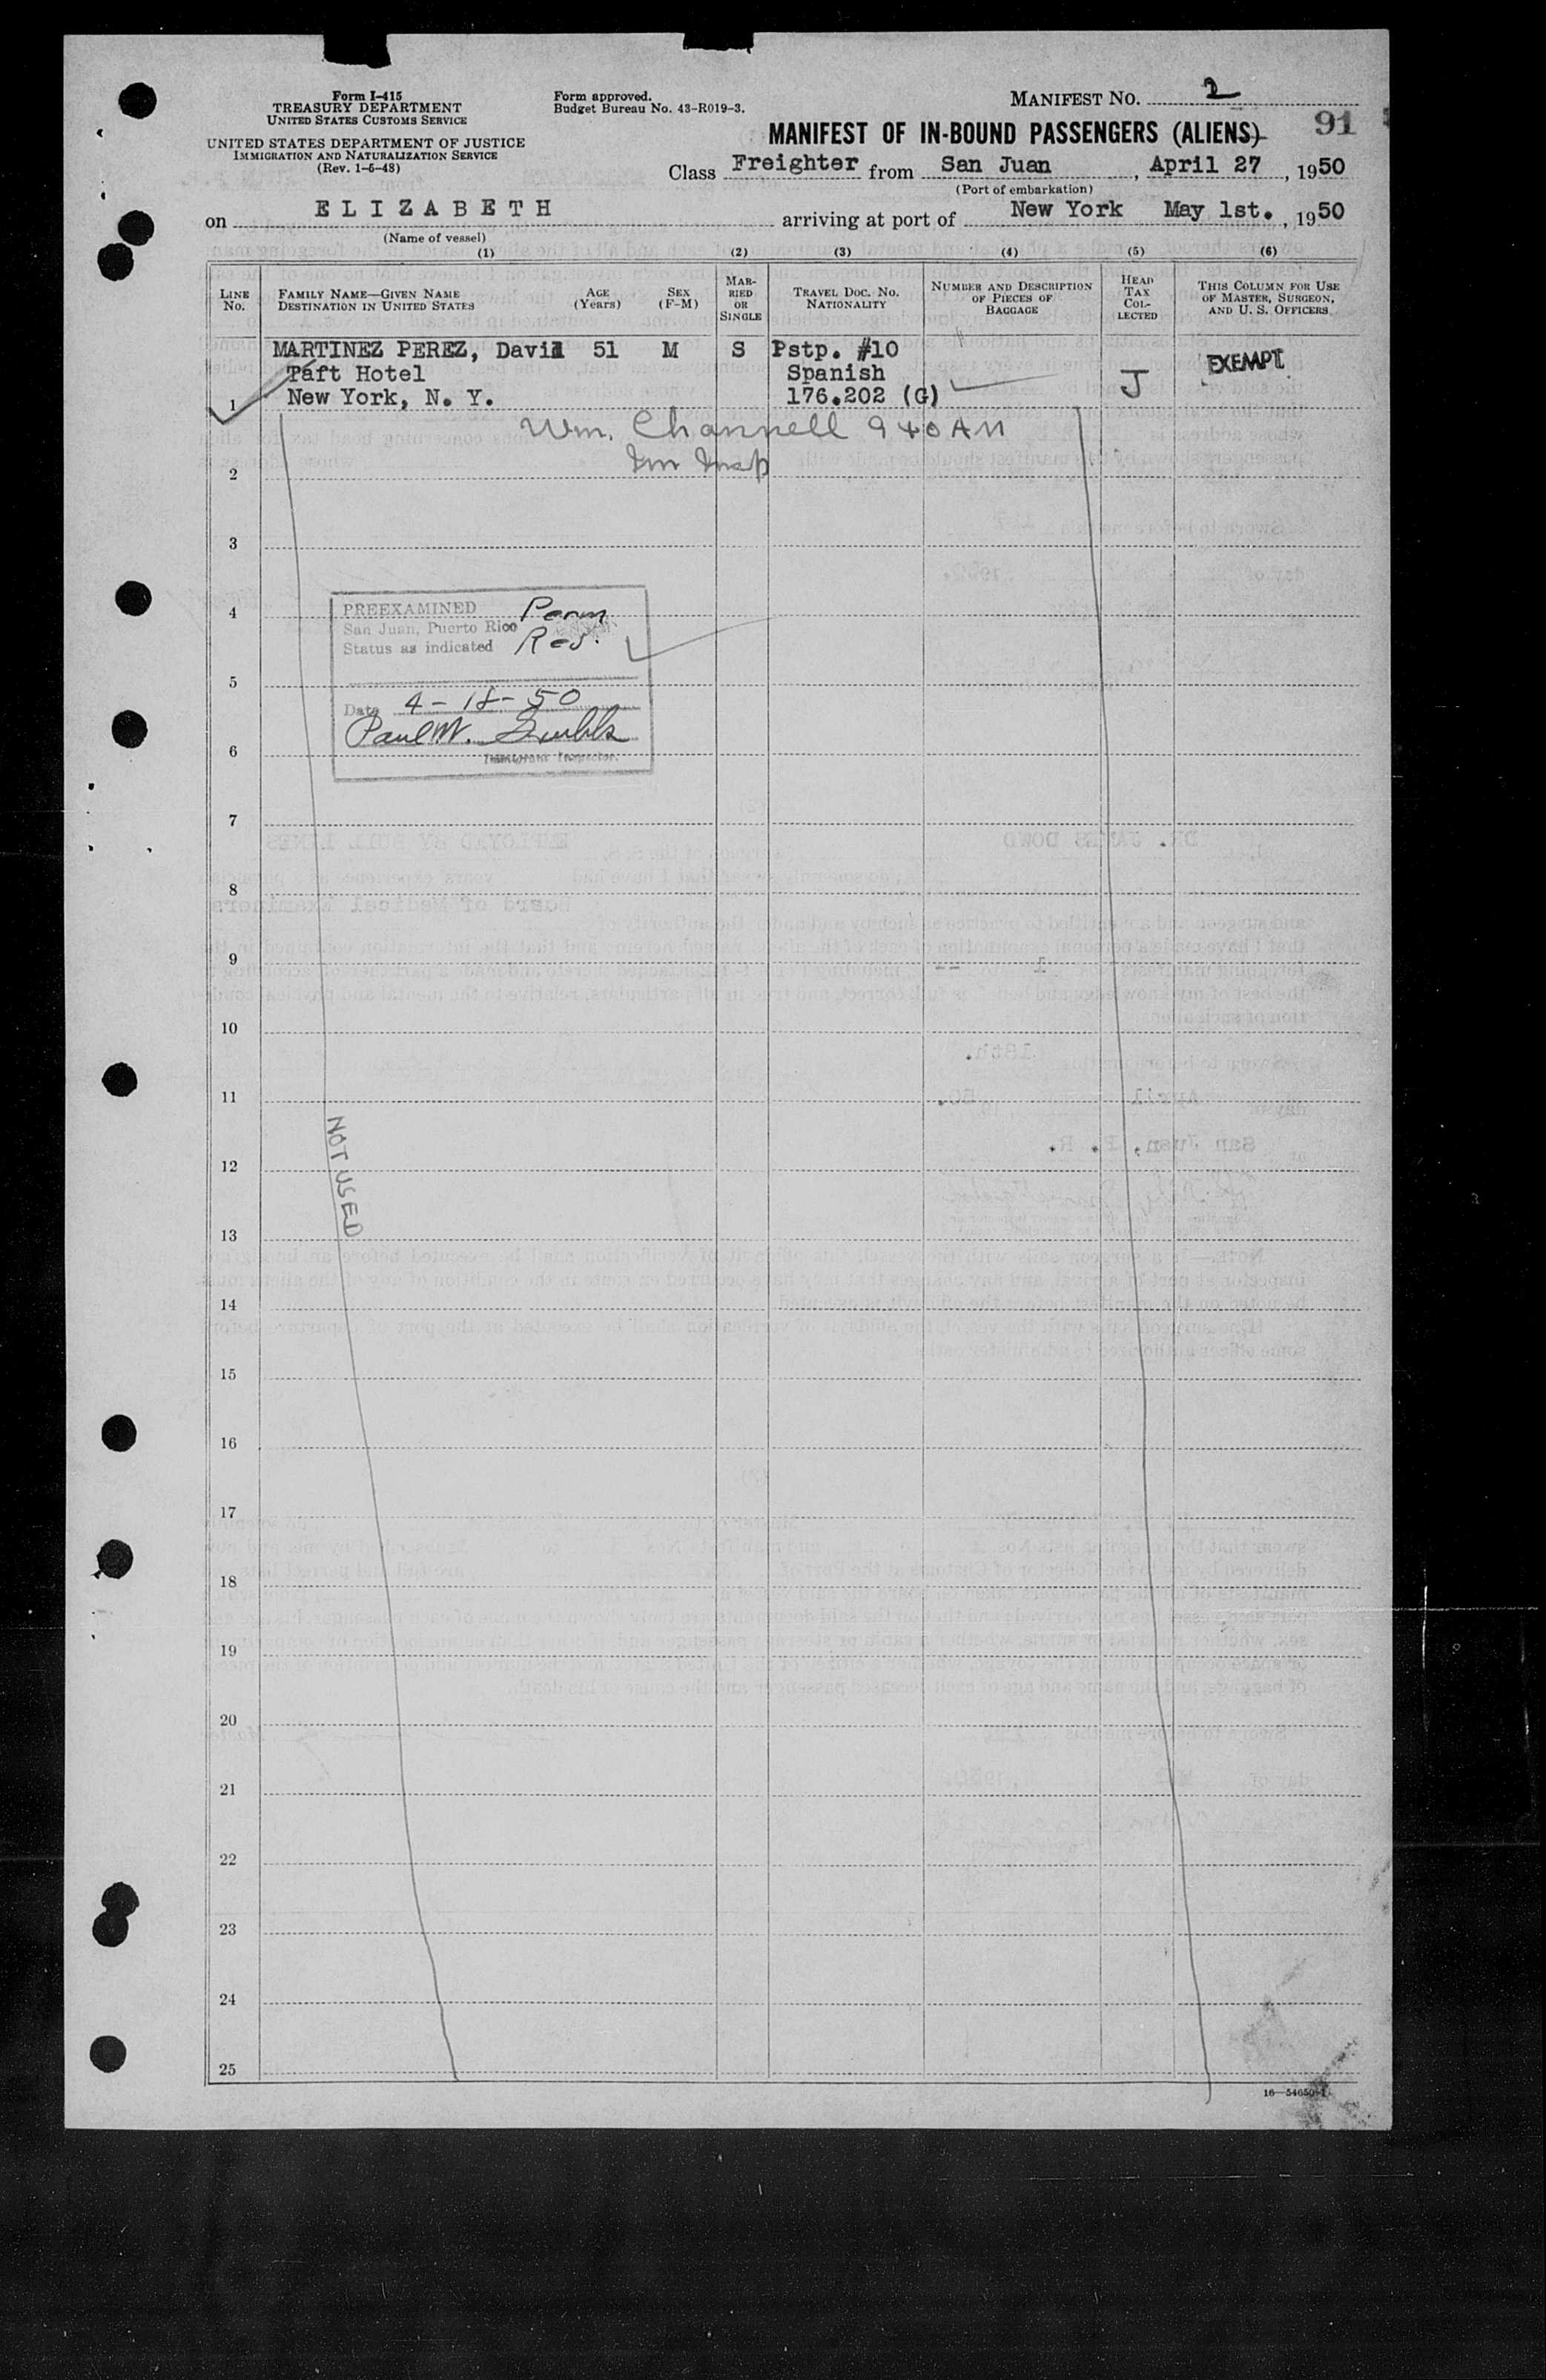 Form I-415
TREASURY DEPARTMENT
UNITED STATES CUSTOMS SERVICE
UNITED STATES DEPARTMENT OF JUSTICE
IMMIGRATION AND NATURALIZATION SERVICE
(Rev. 1-6-48)
Form approved.
Budget Bureau No. 43-R019-3.
MANIFEST NO. 2
91
MANIFEST OF IN-BOUND PASSENGERS (ALIENS)
Class Freighter from San Juan, April 27, 1950
(Port of embarkation)
on ELIZABETH arriving at port of New York May 1st., 1950
(Name of vessel)
(1) (2) (3) (4) (5) (6)
LINE No.
FAMILY NAME—GIVEN NAME
DESTINATION IN UNITED STATES
AGE (Years)
SEX (F-M)
MARRIED OR SINGLE
TRAVEL DOC. NO.
NATIONALITY
NUMBER AND DESCRIPTION OF PIECES OF BAGGAGE
HEAD TAX COLLECTED
THIS COLUMN FOR USE OF MASTER, SURGEON, AND U. S. OFFICERS
MARTINEZ PEREZ, David 51 M S Pstp. #10
Taft Hotel Spanish
1 New York, N. Y. 176.202 (G) J EXEMPT
Wm. Channell 9 40 AM
2 Im Insp
3
4
PREEXAMINED Perm
San Juan, Puerto Rico
Status as indicated Res.
5
Date 4-18-50
Paul W.
6
Immigrant Inspector.
7
8
9
10
11
NOT USED
12
13
14
15
16
17
18
19
20
21
22
23
24
25
16—54650-1